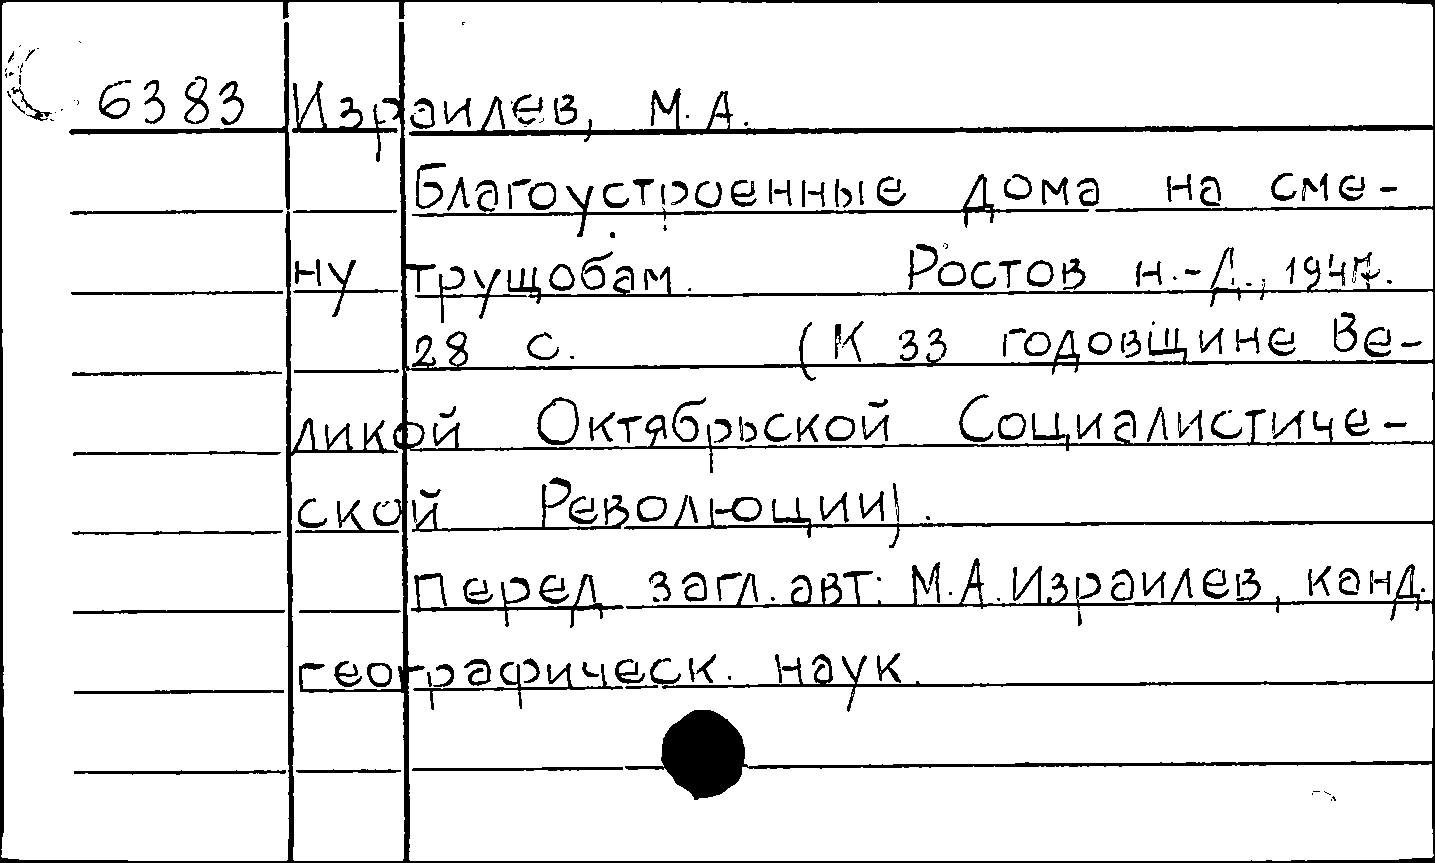 6383 Израилев, М.А.
Благоустроенные дома на сме-
ну трущобам. Ростов н.-Д., 1947.
28 с. (К 33 годовщине Ве-
ликой Октябрьской Социалистиче-
ской Революции).
Перед загл. авт: М.А. Израилев, канд.
географическ. наук.